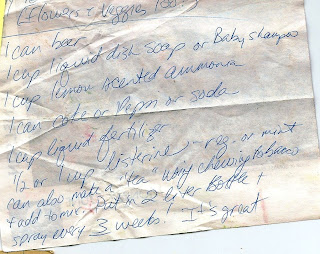 (flowers + Veggies too)
1 can beer
1 cup liquid dish soap or Baby shampoo
1 cup lemon scented ammonia
1 can coke or Pepsi or soda
1 cup liquid fertilizer
1/2 or 1 cup listerine - reg. or mint
can also make a "tea" using chewing tobacco
+ add to mix. Put in 2 liter Bottle +
spray every 3 weeks! It's great